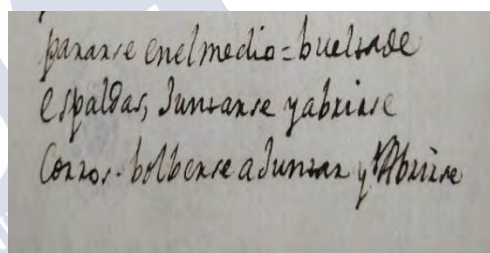 pararse enelmedio = buelta de
espaldas, Juntarse yabrirse
Corros. bolberse aJuntar y Abrirse